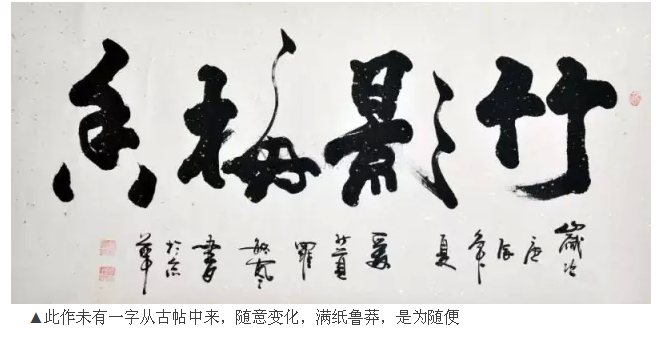 竹影梅香
歲次庚辰年夏 羅 書於京華
▲此作未有一字从古帖中来，随意变化，满纸鲁莽，是为随便